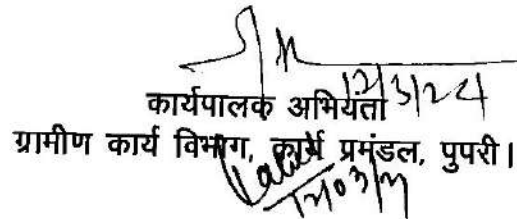 12/3/24
कार्यपालक अभियंता
ग्रामीण कार्य विभाग, कार्य प्रमंडल, पुपरी।